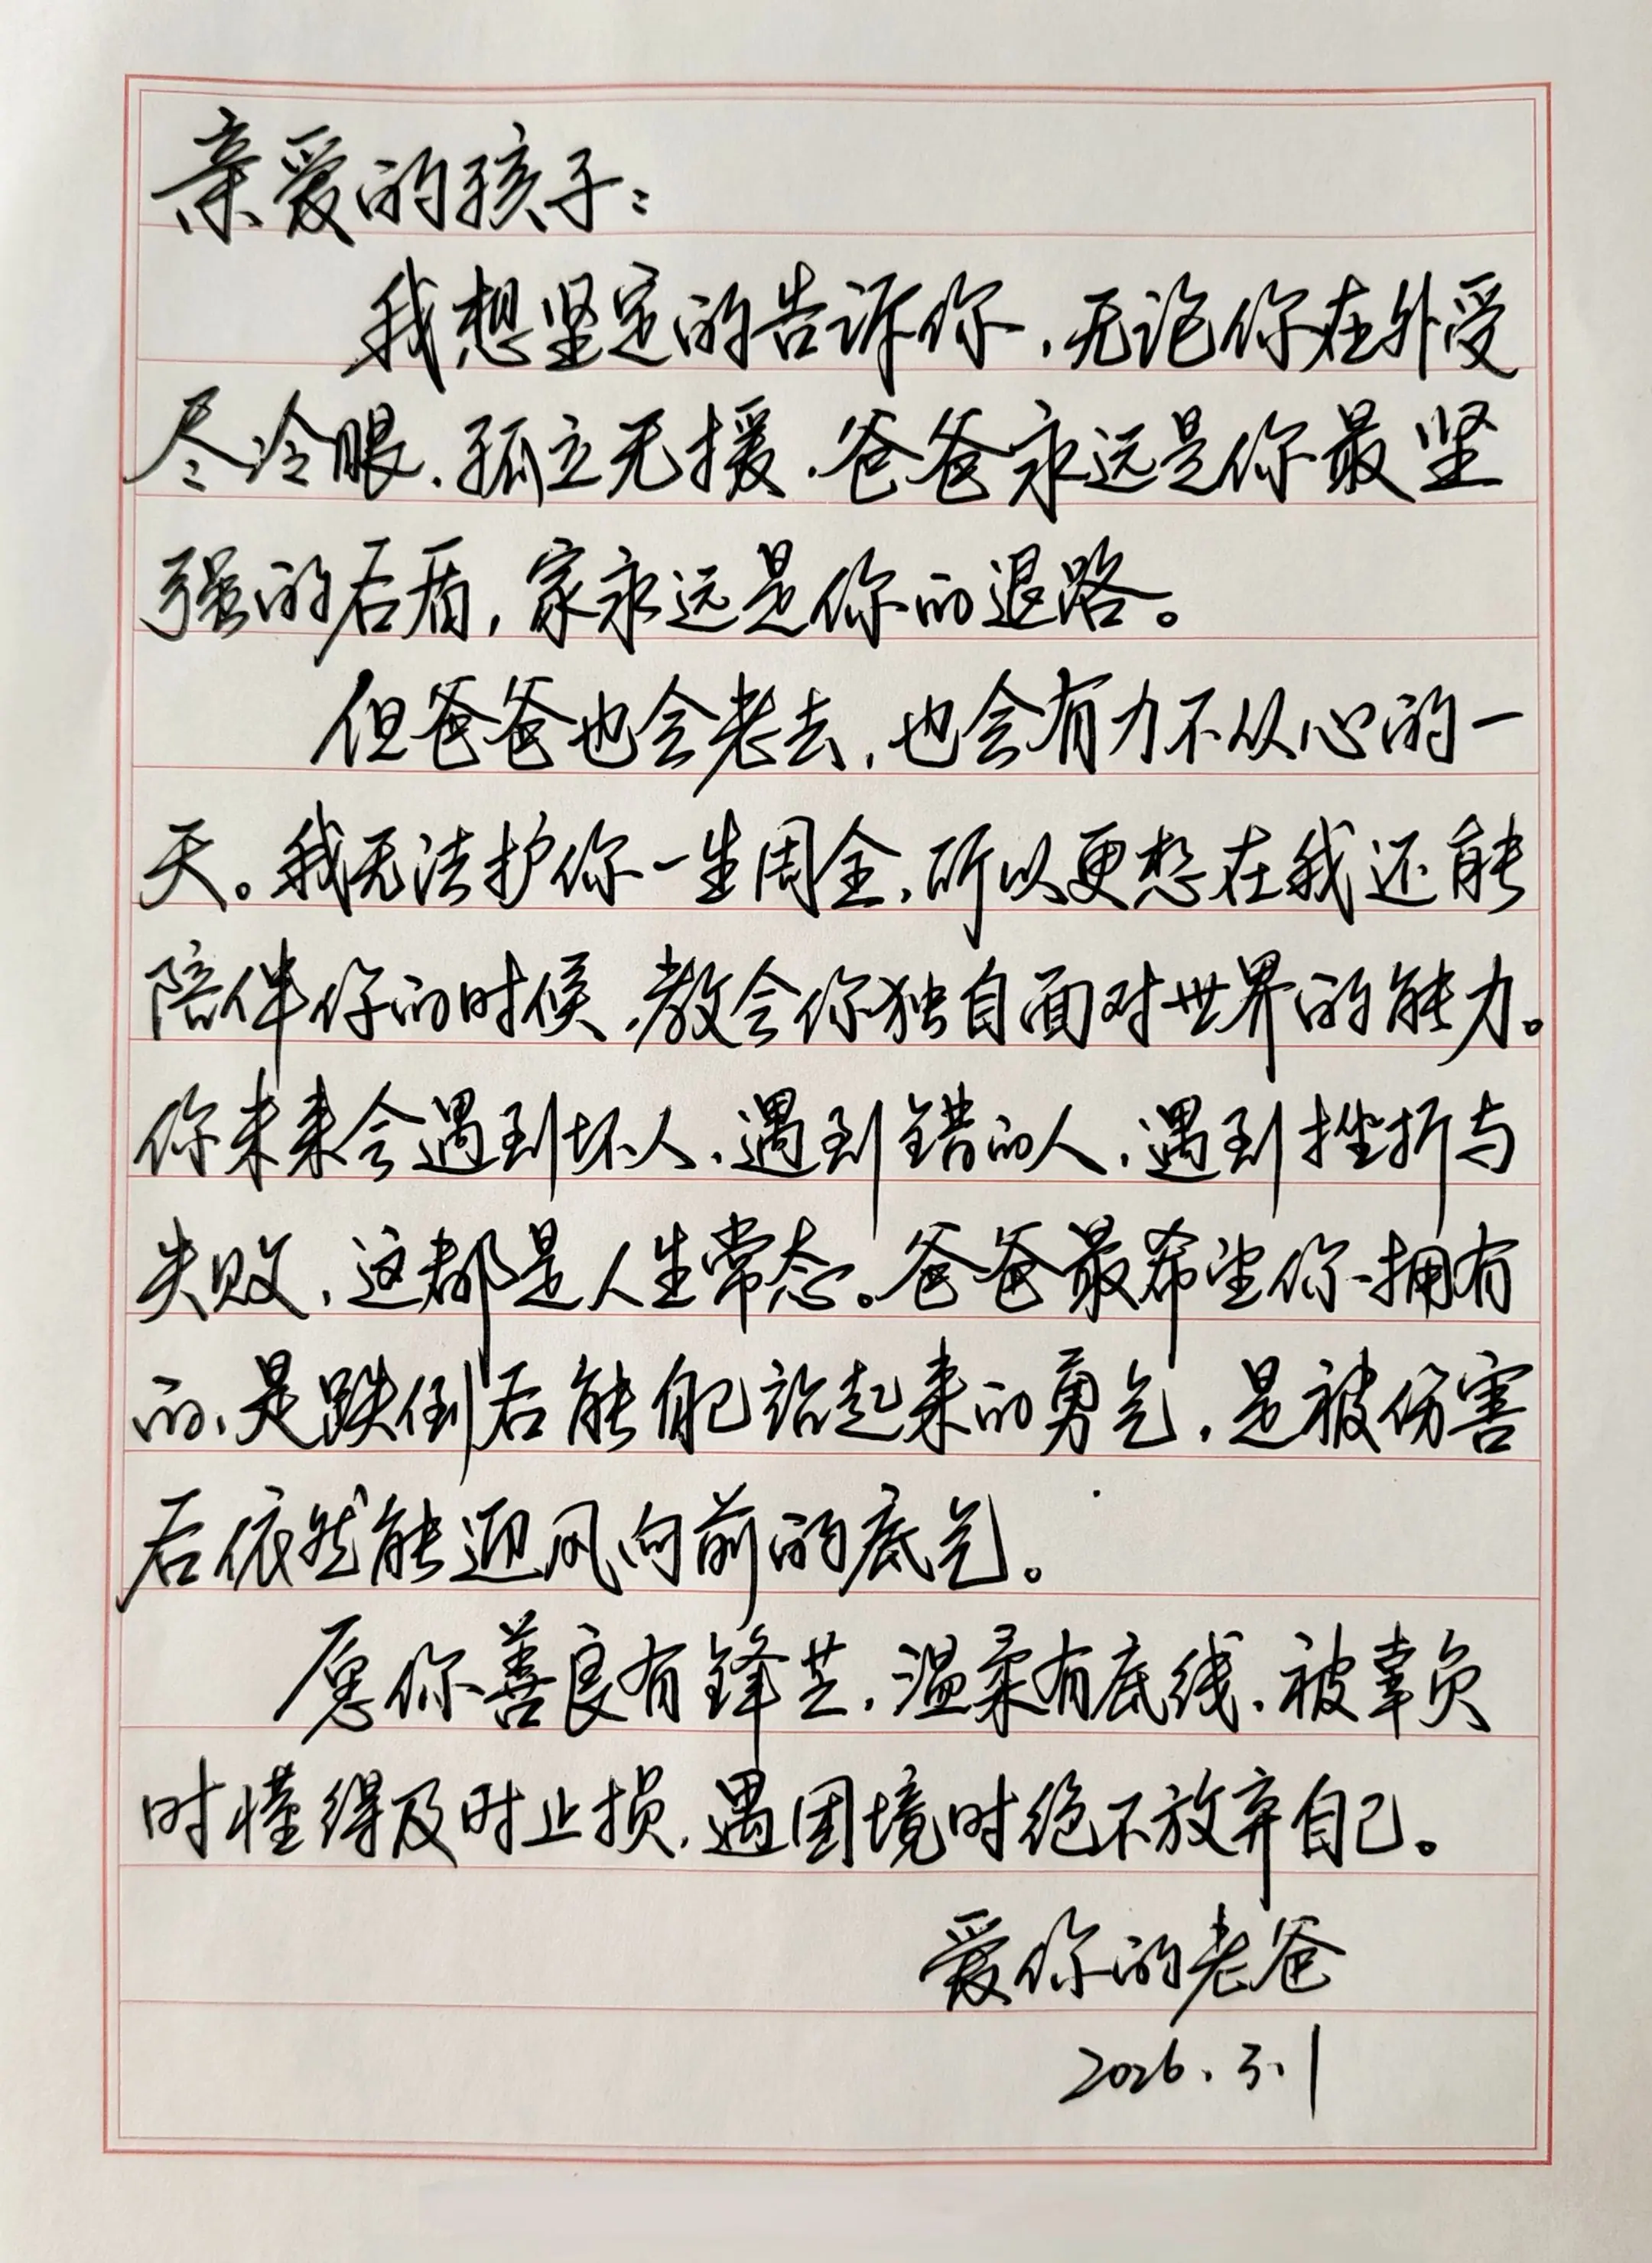 亲爱的孩子：
我想坚定的告诉你，无论你在外受
尽冷眼，孤立无援，爸爸永远是你最坚
强的后盾，家永远是你的退路。
但爸爸也会老去，也会有力不从心的一
天。我无法护你一生周全，所以更想在我还能
陪伴你的时候，教会你独自面对世界的能力。
你未来会遇到坏人，遇到错的人，遇到挫折与
失败，这都是人生常态。爸爸最希望你拥有
的，是跌倒后能自己站起来的勇气，是被伤害
后依然能迎风向前的底气。
愿你善良有锋芒，温柔有底线，被辜负
时懂得及时止损，遇困境时绝不放弃自己。
爱你的老爸
2026.3.1